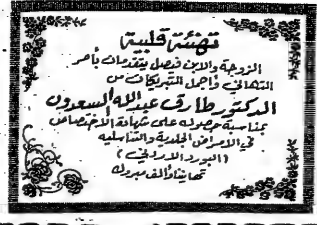 تهنئة قلبية
الزوجة والابن فيصل يتقدمان بأحر
التهاني وأجمل التبريكات من
الدكتور طارق عبدالله السعدون
بمناسبة حصوله على شهادة الاختصاص
في الامراض الجلدية والتناسلية
(البورد الاردني)
تهانينا والف مبروك